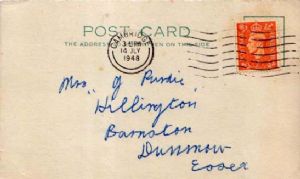 POST CARD
THE ADDRESS TO BE WRITTEN ON THIS SIDE
CAMBRIDGE
14 JLY
1948
Mrs G Purdie
Hillington
Barnston
Dunmow
Essex